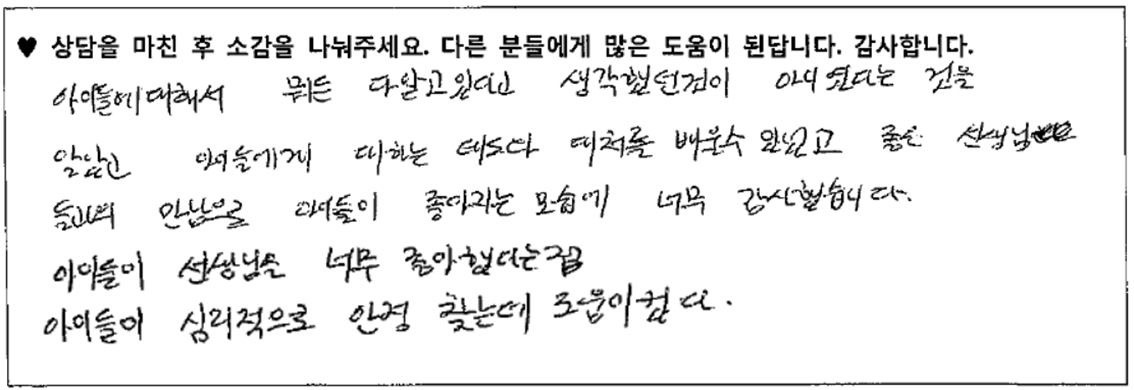 ♥ 상담을 마친 후 소감을 나눠주세요. 다른 분들에게 많은 도움이 된답니다. 감사합니다.
아이들에대해서 뭐든 다알고있다고 생각했던것이 아니였다는 것을
알았고 아이들에게 대하는 태도다 대처를 배울수 있었고 좋은 선생님
들과의 만남으로 아이들이 좋아지는 모습에 너무 감사했습니다.
아이들이 선생님을 너무 좋아했다는점
아이들이 심리적으로 안정 찾는데 도움이컸다.